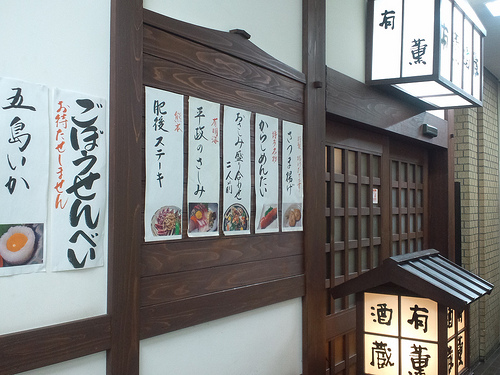 五島いか
ごぼうせんべい
お待たせしません
熊本
肥後ステーキ
平政のさしみ
おさしみ盛り合わせ
二人前
からしめんたい
さつま揚げ
有薫
有薫
酒蔵